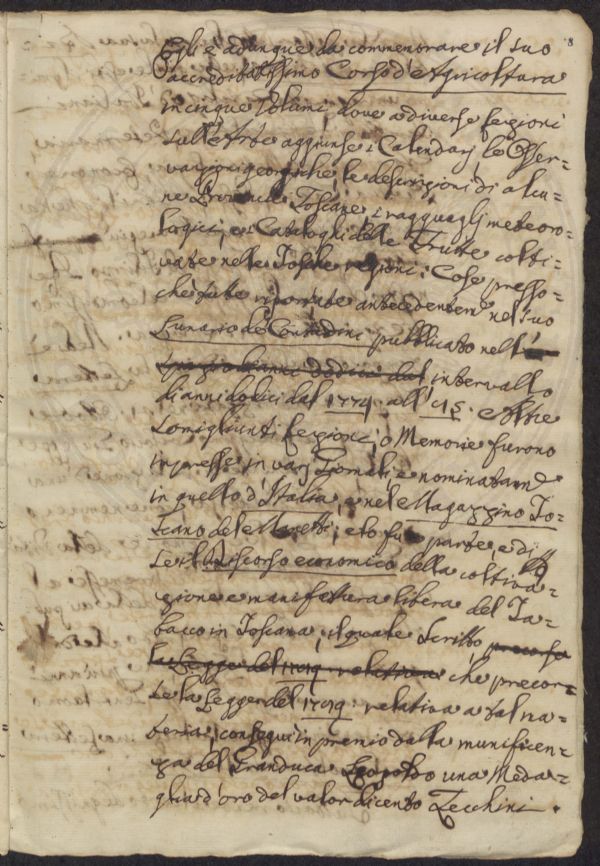 8
Egli è adunque da commemorare il suo
accreditatissimo Corso d'Agricoltura
in cinque Volumi, dove a diverse lezioni
sull'Arte aggiunse i Calendarj le Osser-
vazioni georgiche, le descrizioni di alcu-
ne Provincie Toscane, i ragguaglj meteoro-
logici, e i Cataloghi delle Frutte colti-
vate nelle Tosche regioni: Cose presso-
chè tutte riportate antecedentem nel suo
Lunario de Contadini pubblicato nell'
spazio di anni dodici dal intervallo
di anni dodici dal 1774. all'
e oltre
somiglianti lezioni, o Memorie furono
impresse in varj Giornali, e nominatam
in quello d'Italia, e nel Magazzino To-
scano del Manetti; e lo fu parte, e di
le il Discorso economico della coltiva-
zione e manifattura libera del Ta-
bacco in Toscana, il quale Scritto precorse
la Legge del 1789 relativa che precor-
se la Legge del 1789. relativa a tal ma-
teria, conseguì in premio dalla munificen-
za del Granduca Leopoldo una Meda-
glia d'oro del valor di cento Zecchini.